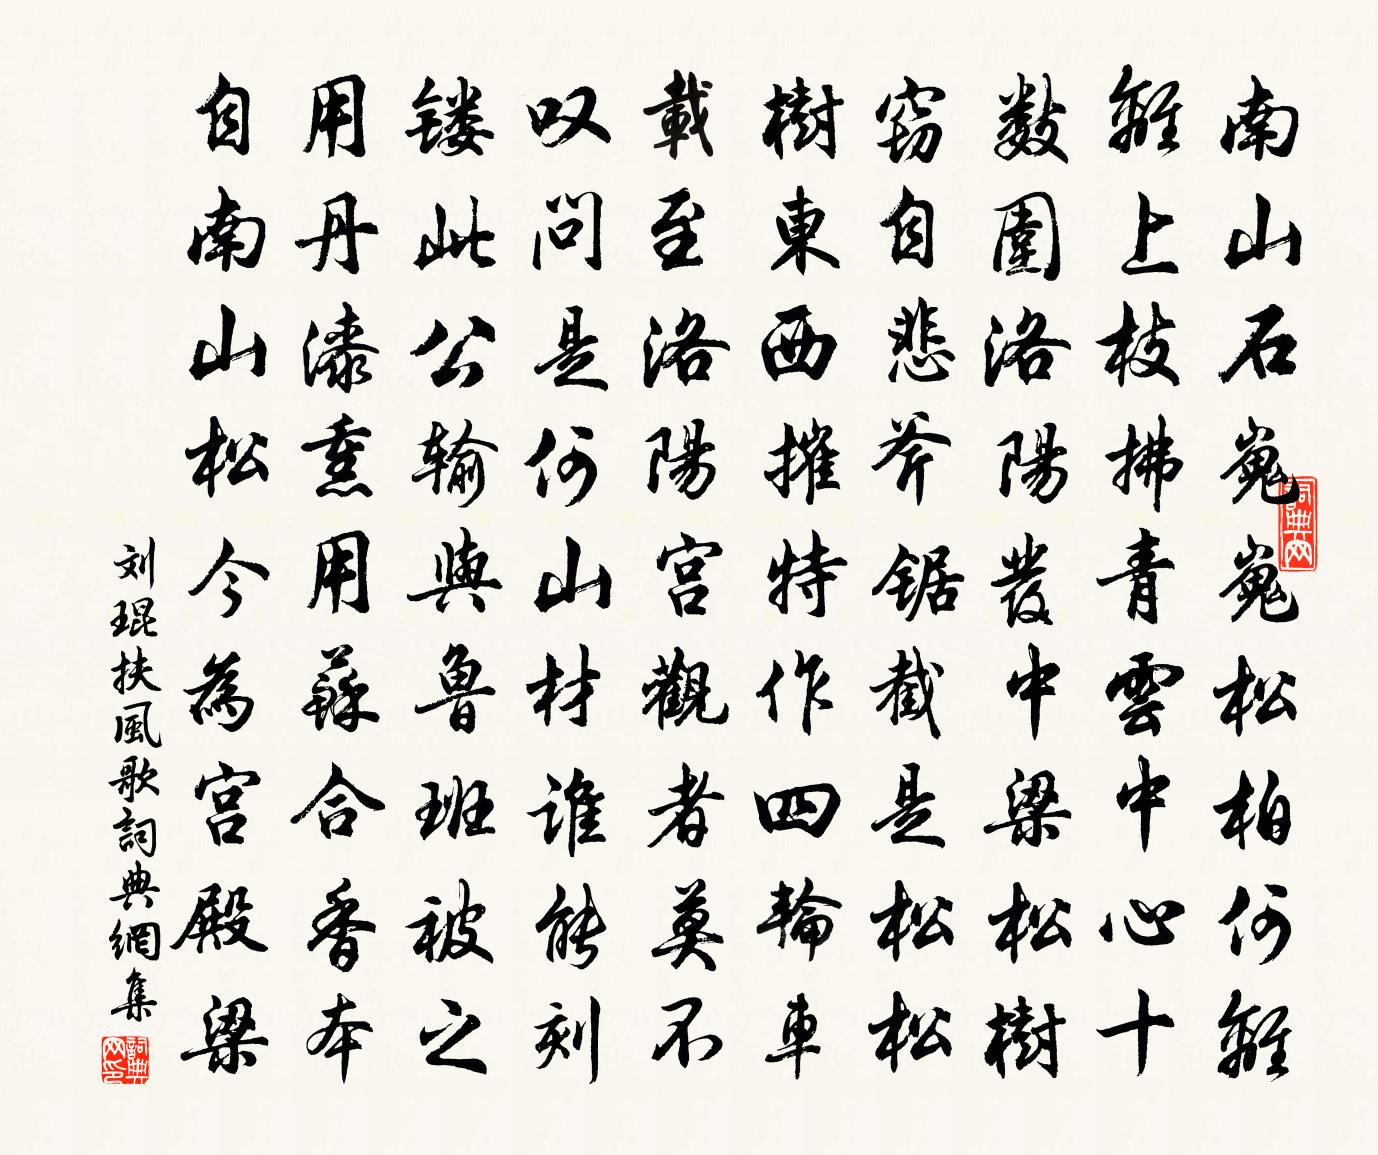 南山石嵬嵬松柏何離
離上枝拂青雲中心十
數圍洛陽發中梁松樹
窃自悲斧锯截是松松
樹東西摧特作四輪車
載至洛陽宮觀者莫不
叹问是何山材谁能刻
镂此公输與鲁班被之
用丹漆熏用蘇合香本
自南山松今為宮殿梁
刘琨扶風歌詞典網集
詞典网
詞典网印